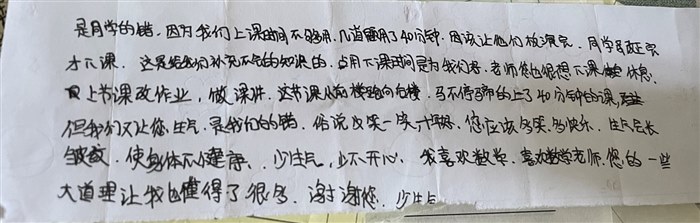 是同学的错，因为我们上课时间不够用，几道题用了40分钟，因该让他们放演完，同学改正完
才下课。这是给我们补充不足的知识的，占用下课时间是为我们好，老师您也很想下课休息，
上节课改作业，做课件，这节课从前楼跑向后楼，马不停蹄的上了40分钟的课，
但我们又让您生气，是我们的错，俗说说笑一笑十年少，您应该多笑多快乐，生气会长
皱纹，使身体不健康，少生气，少不开心，我喜欢数学，喜欢数学老师，您的一些
大道理让我也懂得了很多，谢谢您，少生气